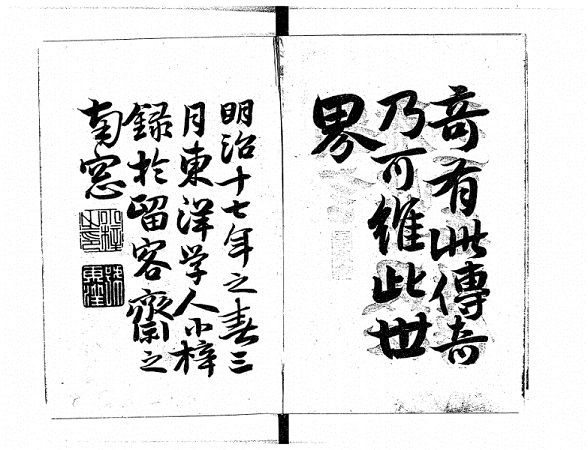 竒有此傳竒
乃可維此世
界
明治十七年之春三
月東洋学人小梓
録於留客齋之
南窓